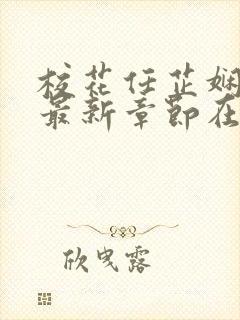 校花任芷娴
最新章节在
欣曳露